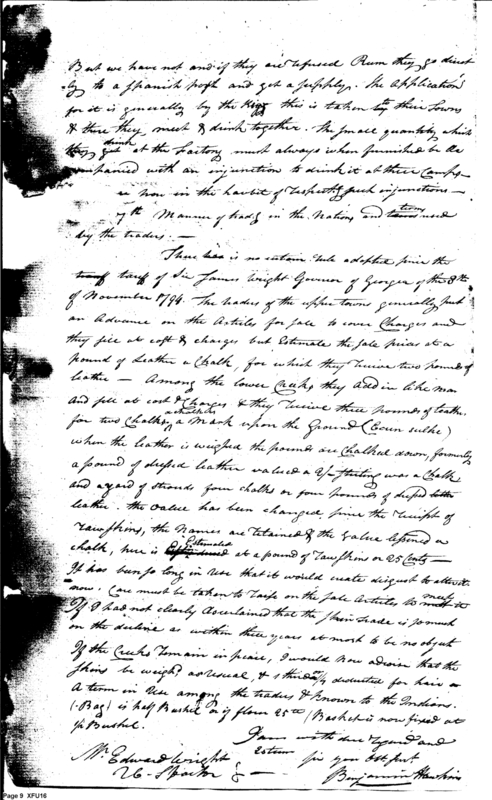 But we have not and if they are refused Rum they go direct
ly to a Spanish post and get a supply. The application
for it is generally by the Kegs this is taken to their Towns
& there they meet & drink together. The small quantity which
they drink at the Factory must always when furnished be ac
companied with an injunction to drink it at their Camps
now in the habit of respecting such injunctions —
7th Manner of tradg in the Nations and terms used
by the traders. —
There is no certain rule adopted since the
tariff of Sir James Wright Govenor of Georgia of the 8th
of November 1794. The traders of the upper towns generally put
an Advance on the Articles for sale to cover Charges and
they sell at cost & charges but Estimate the sale prices at a
pound of Leather a Chalk, for which they receive two pounds of
leather — Among the lower Creeks they add in like man
and sell at cost & Charges & they receive three pounds of leather
for two Chalks, a Mark upon the Ground
when the leather is weighed the pounds are Chalked down, formerly
a pound of dressed leather valued a 2/- sterling was a Chalk
and a yard of strouds four chalks or four pounds of dressed
leather. The value has been changed since the receipt of
rawskins, the Names are retained & the value
chalk, here is Estimated at a pound of rawskins or 25 Cents —
It has been so long in Use that it would create disgust to alter it
now. Care must be taken to Tariff on the sale Articles
If I had not clearly ascertained that the skin trade is so much
on the decline as within three years at most to be no object
If the Creeks remain in peace, I would now advise that the
skins be weighd as usual, & deducted for hair or
A term in Use among the traders & known to the Indians.
(-Bag) is half Bushel of flour 25 / Basket is now fixed at
½ Bushel.
I am with due regard and
esteem sir your Obt svt
Mr Edward Wright
U S Factor
Benjamin Hawkins
Page 9 XFU16